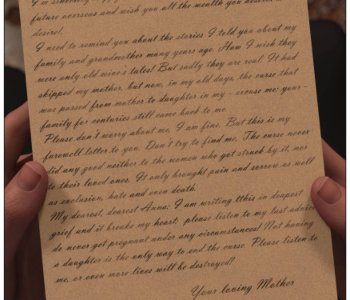 future overseas and wish you all the wealth you deserve and
desire!
I need to remind you about the stories I told you about my
family and grandmother many years ago. How I wish they
were only old wine's tales! But sadly they are real. It had
skipped my mother, but now, in my old days, the curse that
was passed from mother to daughter in my - excuse me; your -
family for centuries still came back to me.
Please don't worry about me, I am fine. But this is my
farewell letter to you. Don't try to find me. The curse never
did any good neither to the women who got struck by it, nor
to their loved ones. It only brought pain and sorrow as well
as exclusion, hate and even death.
My dearest, dearest Anna: I am writing this in deapest
grief und it breaks my heart: please listen to my last advice
do never get pregnant under any circumstances! Not having
a daughter is the only way to end the curse. Please listen to
me, or even more lives will be destroyed!
Your loving Mother